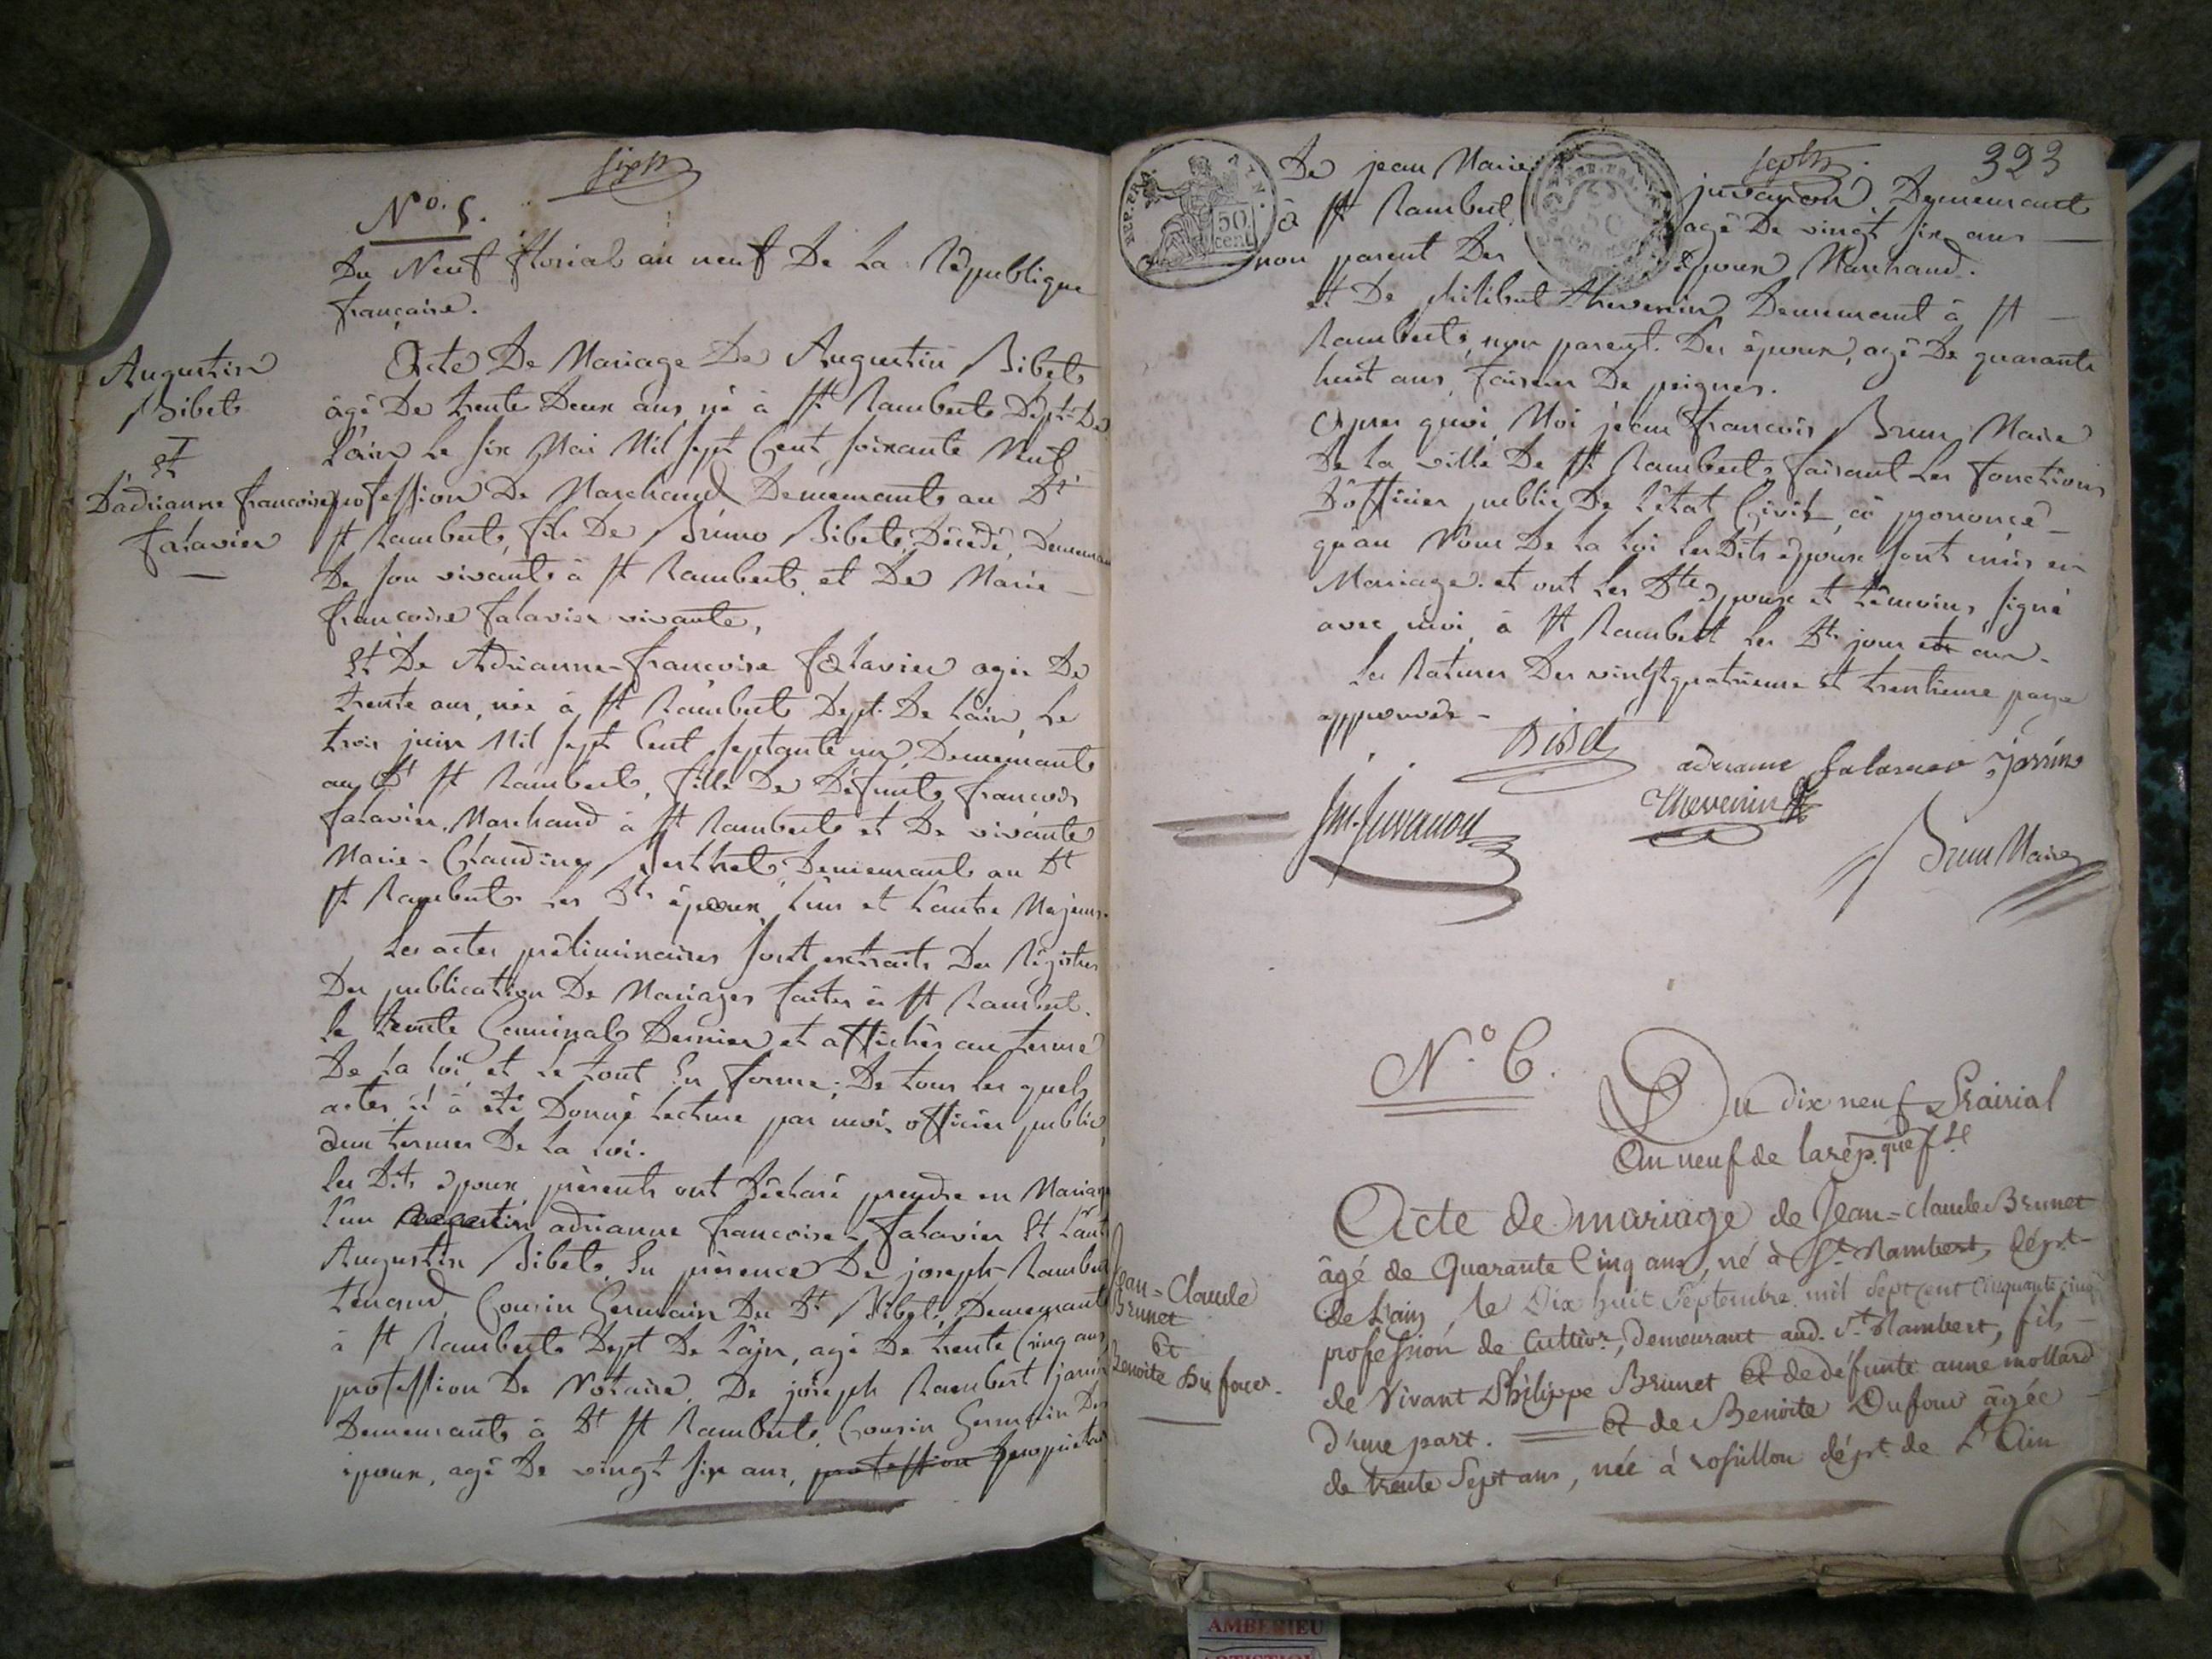 N.o 5.
Du Neuf floréal an neuf De La République
française.
Augustin
Bibet
et
D'adrianne francoise
falavier
Acte De Mariage De Augustin Bibet
âgé De trente Deux ans, né à St Rambert Dept De
L'ain Le six Mai Mil sept Cent soixante Neuf
profession De Marchand Demeurant au Dt
St Rambert, fils De Bruno Bibet, Décédé, Demeurant
De son vivant à St Rambert, et De Marie
francoise falavier vivante,
Et De Adrianne-francoise falavier agée De
trente ans, née à St Rambert Dept. De L'ain, Le
trois juin Mil sept Cent septante un, Demeurante
au Dt St Rambert, fille De Défunt francois
falavier, Marchand à St Rambert et De vivante
Marie-Claudine Berthet Demeurant au Dt
St Rambert. Les Dts époux, L'un et L'autre Majeurs.
Les actes préliminaires sont extraits Des Régistres
Des publication De Mariages faites à St Rambert.
le trente Germinal Dernier et affichés au terme
De La Loi et Le tout En forme; De tous Les quels
actes il à été Donné Lecture par moi, officier public,
aux termes De La Loi.
Les Dits époux présents ont Déclaré prendre en Mariage
L'un adrianne francoise-falavier Et L'autre
Augustin Bibet, En présence De joseph Rambert
tenand, Cousin Germain Du Dt Bibet, Demeurant
à St Rambert Dept De L'ain, agé De trente Cinq ans
profession De Notaire, De joseph Rambert jarrin
Demeurant à Dt St Rambert, Cousin Germain Des
époux, agé De vingt six ans, profession propriétaire
REP. FRA.
50
cent
septe.
323
De jean Marie juvanon Demeurant
à St Rambert, agé De vingt six ans
non parent Des époux Marchand.
et De philibert thevenin Demeurant à St
Rambert, non parent. Des époux, agé De quarante
huit ans, faiseur De peignes.
Apres quoi, Moi jean francois Brun Maire
De La ville De St Rambert, faisant Les fonctions
D'officier public De L'état Civil, ai prononcé
qu'au Nom De La Loi Les Dits époux sont unis en
Mariage. et ont Les Dts époux et témoins, signé
avec moi, à St Rambert Les Dts jour et an.
Les Ratures Des vingt quatrieme et trentieme page
approuvés -
Bibet
adrianne falavier jarrin
Jn. Juvanon
Thevenin
Brun Maire
N.o 6.
Du dix neuf Prairial
An neuf de la rép.que f.se
Jean-Claude
Brunet
Et
Benoite Dufour.
Acte de mariage de Jean-claude Brunet
âgé de Quarante Cinq ans, né à St. Rambert, dépt.
de L'ain, le Dix huit Septembre mil Sept Cent Cinquante cinq
profession de Cultivr., demeurant aud. St. Rambert, fils
de Vivant Philippe Brunet Et de défunte anne mollard
d'une part. Et de Benoite Dufour âgée
de trente Sept ans, née à rossillon dépt. de L'Ain
AMBERIEU